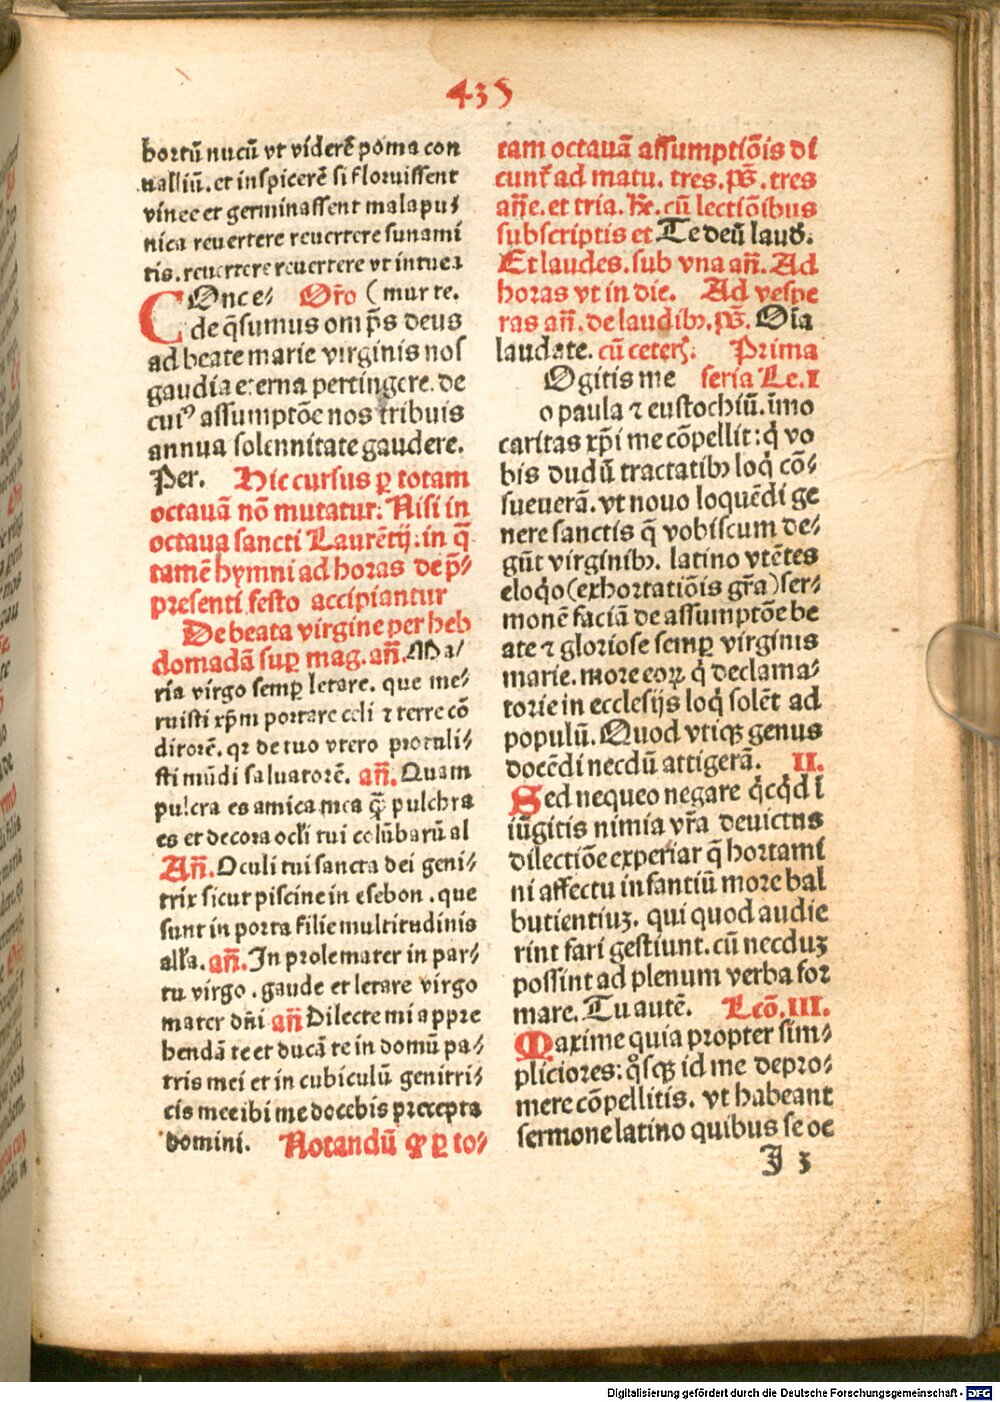 435
hortū nucū vt viderē poma con
ualliū. et inspicerē si floruissent
vinee et germinassent mala pu-
nica reuertere reuertere sunami
tis. reuertere reuertere vt intuea
COnce- Oro (mur te.
de qsumus omps deus
ad beate marie virginis nos
gaudia eterna pertingere. de
cuiꝰ assumptōe nos tribuis
annua solennitate gaudere.
Per. Hic cursus ꝑ totam
octauā nō mutatur: Nisi in
octaua sancti Laurētij: in q̄
tamē hymni ad horas de p̄-
presenti festo accipiantur
De beata virgine per heb
domadā suꝑ mag. añ. Ma-
ria virgo semꝑ letare. que me-
ruisti xp̄m portare celi ⁊ terre cō
ditorē. qꝛ de tuo vtero protuli-
sti mūdi saluatorē. añ. Quam
pulcra es amica mea q̄ꝫ pulchra
es et decora ocłi tui colūbarū al
Añ. Oculi tui sancta dei geni-
trix sicut piscine in esebon. que
sunt in porta filie multitudinis
ałła. añ. In prole mater in par-
tu virgo. gaude et letare virgo
mater dñi añ Dilecte mi appre
hendā te et ducā te in domū pa-
tris mei et in cubiculū genitri-
cis mee ibi me docebis precepta
domini. Notandū ꝙ ꝑ to-
tam octauā assumptiōis di
cunt̄ ad matu. tres. pš. tres
añe. et tria. ꝶe. cū lectiōibus
subscriptis et Te deū laud.
Et laudes. sub vna añ. Ad
horas vt in die. Ad vespe
ras añ. de laudibꝫ. pš. Oīa
laudate. cū ceterꝭ: Prima
Ogitis me feria Le. I
o paula ⁊ eustochiū. īmo
caritas xp̄i me cōpellit: q̇ vo
bis dudū tractatibꝫ loq̇ cō-
sueuerā. vt nouo loquēdi ge
nere sanctis q̄ vobiscum de-
gūt virginibꝫ. latino vtētes
eloq̇o (exhortatiōis gr̄a) ser-
monē faciā de assumptōe be
ate ⁊ gloriose semꝑ virginis
marie. more eoꝝ q̇ declama-
torie in ecclesijs loq̇ solēt ad
populū. Quod vtiqꝫ genus
docēdi necdū attigerā. II.
Sed nequeo negare q̇cq̇d ī
iūgitis nimia vr̄a deuictus
dilectiōe experiar q̄ hortami
ni affectu infantiū more bal
butientiuꝫ. qui quod audie
rint fari gestiunt. cū necduꝫ
possint ad plenum verba for
mare. Tu autē. Lcō. III.
Maxime quia propter sim-
pliciores: qͦsqꝫ id me depro-
mere cōpellitis. vt habeant
sermone latino quibus se oc
J 3
Digitalisierung gefördert durch die Deutsche Forschungsgemeinschaft - DFG